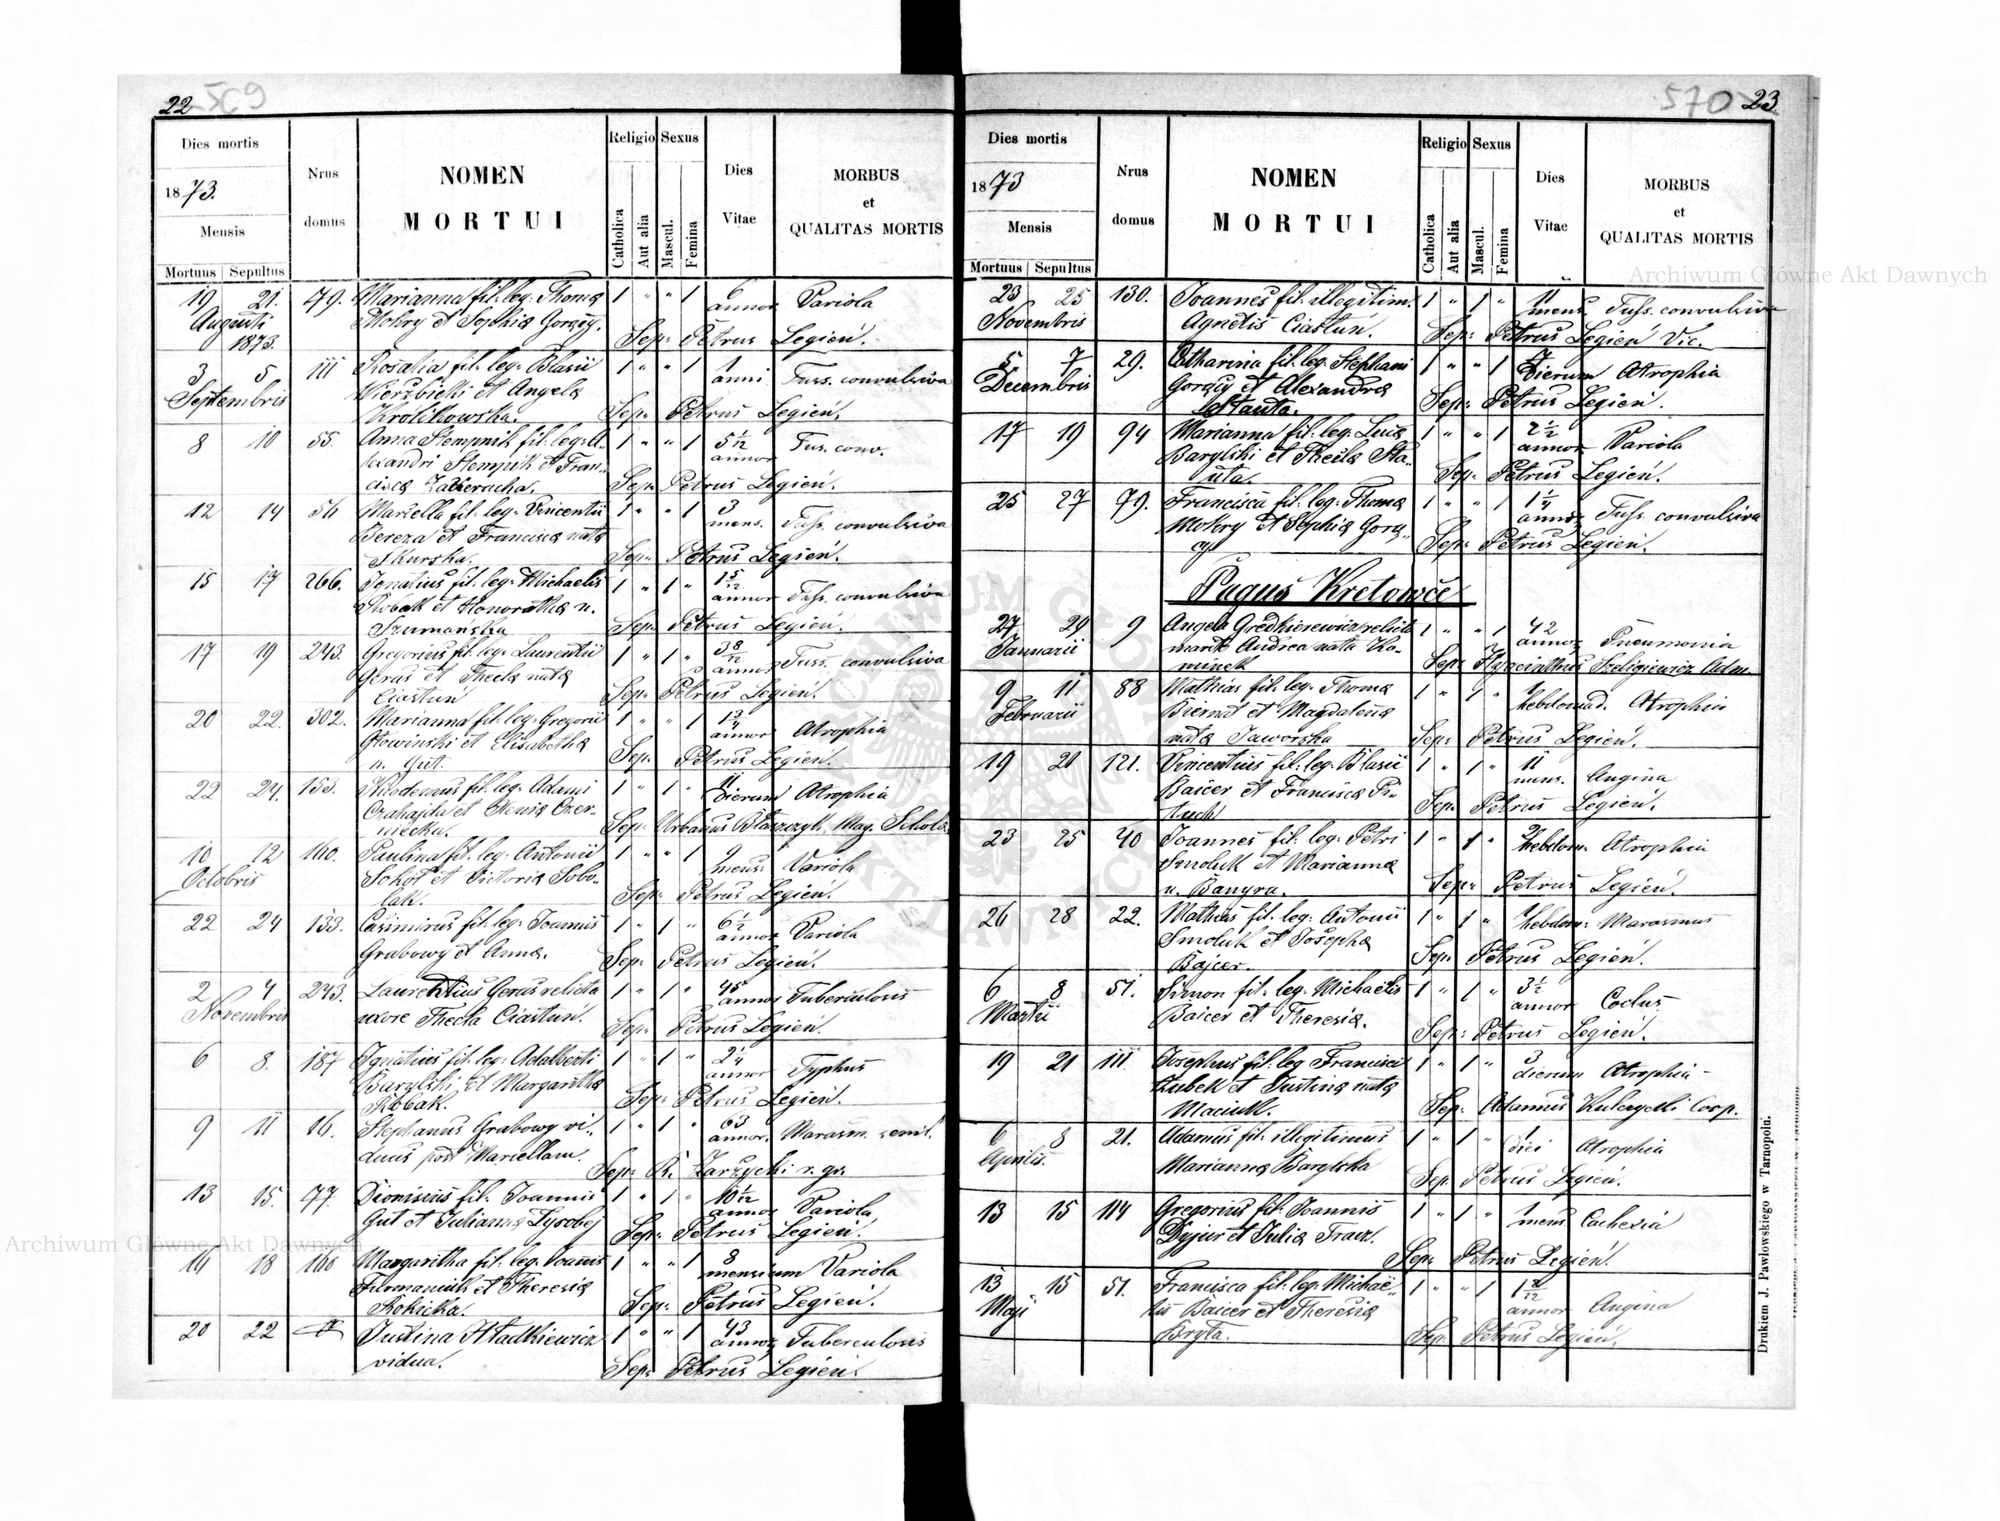 22
569
Dies mortis
1873.
Mensis
Mortuus | Sepultus
Nrus
domus
NOMEN
MORTUI
Religio
Catholica
Aut alia
Sexus
Mascul.
Femina
Dies
Vitae
MORBUS
et
QUALITAS MORTIS
19 21. 79. Marianna fil. leg. Thomæ 1 " " 1 6 annor Variola
Augusti Mokry et Sophiæ Gorący.
1873. Sep: Petrus Legień.
3 5 111 Rosalia fil. leg. Blasii 1 " " 1 1 anni Tuss. convulsiva
Septembris Wierzbicki et Angelæ
Krolikowska. Sep: Petrus Legień.
8 10 55. Anna Stempnik fil. leg. A- 1 " " 1 5 1/12 annor Tus. conv.
lexandri Stempnik et Fran-
ciscæ Sep: Petrus Legień.
12 14 56 Marcella fil. leg. Vincentii 1 " " 1 3 mens. Tuss. convulsiva
Bereza et Franciscæ nata
Skurska. Sep: Petrus Legień.
15 17 266. Ignatius fil. leg. Michaelis 1 " 1 " 1 5/12 annor Tuss. convulsiva
Robak et Honorathæ n.
Szumańska Sep: Petrus Legień.
17 19 243. Gregorius fil. leg. Laurentii 1 " 1 " 3 8/12 annor Tuss. convulsiva
Geras et Theclæ natæ
Ciastuń Sep: Petrus Legień.
20 22. 302. Marianna fil. leg. Gregorii 1 " " 1 1 3/4 annor Atrophia
Głowinski et Elisabethæ
n. Gut. Sep: Petrus Legień.
22 24. 153. Nicodemus fil. leg. Adami 1 " 1 " 11 dierum Atrophia
Czahajda et Xeniæ Czer-
niecka. Sep: Urbanus Błaszczyk, Mag. Scholæ
10 12 160. Paulina fil. leg. Antonii 1 " " 1 9 mens. Variola
Octobris Sokół et Victoriæ Sobo-
lak. Sep: Petrus Legień.
22 24 133. Casimirus fil. leg. Joannis 1 " 1 " 6 1/2 annor Variola
Grabowy et Annæ. Sep: Petrus Legień.
2 4 243. Laurentius Geras relicta 1 " 1 " 45 annor Tuberculosis
Novembris uxore Thecla Ciastuń. Sep: Petrus Legień.
6 8. 187 Ignatius fil. leg. Adalberti 1 " 1 " 2 1/4 annor Typhus
Barylski et Margarithæ
Robak. Sep: Petrus Legień.
9 11 16. Stephanus Grabowy vi- 1 " 1 " 63 annor. Marasm. senil.
duus post Marcellam. Sep: R. Zarzycki r. gr.
13 15. 77. Dionisius fil. Joannis 1 " 1 " 10 1/12 annor Variola
Gut et Juliannæ Łysobej Sep: Petrus Legień.
16 18 166 Margaritha fil. leg. Joannis 1 " " 1 8 mensium Variola
Furmaniuk et Theresiæ
Rokicka. Sep: Petrus Legień.
20 22 Justina Hładkiewicz 1 " " 1 43 annor Tuberculosis
vidua. Sep: Petrus Legień.
570
23
Dies mortis
1873
Mensis
Mortuus | Sepultus
Nrus
domus
NOMEN
MORTUI
Religio
Catholica
Aut alia
Sexus
Mascul.
Femina
Dies
Vitae
MORBUS
et
QUALITAS MORTIS
23 25 130. Joannes fil. illegitim. 1 " 1 " 11 mens. Tuss. convulsiva
Novembris Agnetis Ciastuń. Sep: Petrus Legień Vic.
5 7 29. Catharina fil. leg. Stephani 1 " " 1 7 dierum Atrophia
Decembris Gorący et Alexandræ
Stauta. Sep: Petrus Legień.
17 19 94 Marianna fil. leg. Lucæ 1 " " 1 2 1/2 annor Variola
Barylski et Theclæ Sta-
uta. Sep: Petrus Legień.
25 27 79. Francisca fil. leg. Thomæ 1 " " 1 1 1/4 annor Tuss. convulsiva
Mokry et Sophiæ Gorą-
cy Sep: Petrus Legień.
Pagus Kretowce
27 29 9 Angela Gredkierewicz relicto 1 " " 1 42 annor Pneumonia
Januarii marito Andrea nata Ko-
minek Sep: Hyacinthus Szeligiewicz Adm.
9 11 88 Mathias fil. leg. Thomæ 1 " 1 " 1 hebdomad. Atrophia
Februarii Biernat et Magdalenæ
natæ Jaworska Sep: Petrus Legień.
19 21 121. Vincentius fil. leg. Blasii 1 " 1 " 11 mens. Angina
Baicer et Franciscæ Pi-
luch Sep: Petrus Legień.
23 25 40 Joannes fil. leg. Petri 1 " 1 " 2 hebdom. Atrophia
Smoluk et Mariannæ
n. Banyra. Sep: Petrus Legień.
26 28 22. Mathias fil. leg. Antonii 1 " 1 " 1 hebdom. Marasmus
Smoluk et Josephæ
Bajcer. Sep: Petrus Legień.
6 8 51. Simon fil. leg. Michaelis 1 " 1 " 3 1/2 annor Coclus.
Martii Baicer et Theresiæ. Sep: Petrus Legień.
19 21 111. Josephus fil. leg Francisci 1 " 1 " 3 dierum Atrophia
Zubek et Justinæ natæ
Maciuk. Sep: Adamus Kulczycki Coop.
6 8 21. Adamus fil. illegitimus 1 " 1 " 1 diei Atrophia
Aprilis. Mariannæ Barylska Sep: Petrus Legień.
13 15 114 Gregorius fil. Joannis 1 " 1 " 1 mens Cachexia
Dyjur et Juliæ Fracz. Sep: Petrus Legień.
13 15 51. Francisca fil. leg. Michaë- 1 " " 1 annor Angina
Maji lis Baicer et Theresiæ
Bryła. Sep: Petrus Legień.
Drukiem J. Pawłowskiego w Tarnopolu.
Archiwum Główne Akt Dawnych
Archiwum Główne Akt Dawnych
ARCHIWUM GŁÓWNE AKT DAWNYCH